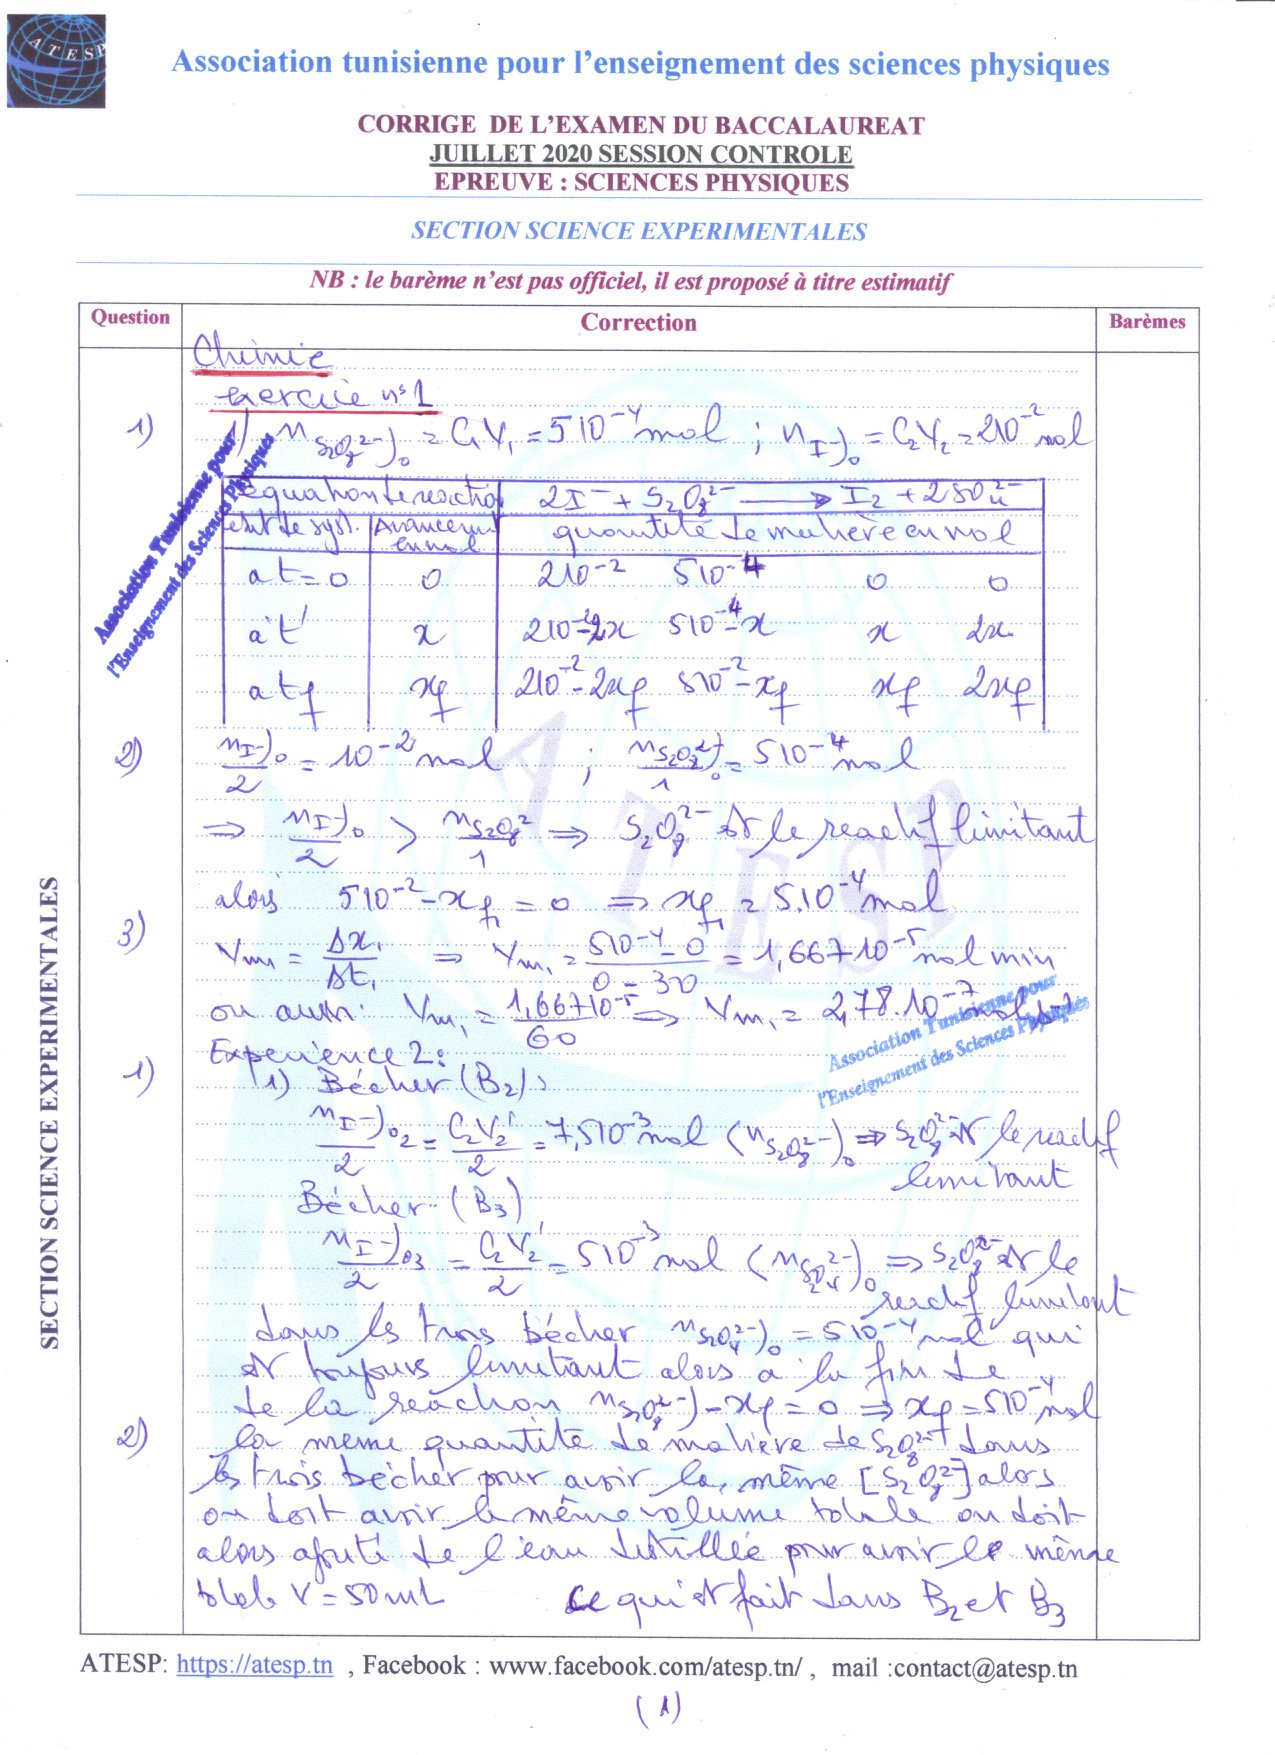 ATESP
Association tunisienne pour l'enseignement des sciences physiques
CORRIGE DE L'EXAMEN DU BACCALAUREAT
JUILLET 2020 SESSION CONTROLE
EPREUVE : SCIENCES PHYSIQUES
SECTION SCIENCE EXPERIMENTALES
NB : le barème n'est pas officiel, il est proposé à titre estimatif
Question Correction Barèmes
Chimie
exercice n°1
1) 1) n S₂O₈²⁻)₀ = C₁V₁ = 5 10⁻⁴ mol ; n I⁻)₀ = C₂V₂ = 2 10⁻² mol
Association Tunisienne pour
l'Enseignement des Sciences Physiques
équation de reaction 2I⁻ + S₂O₈²⁻ → I₂ + 2SO₄²⁻
etat de syst. Avancement en mol quantité de matière en mol
a t = 0 0 2 10⁻² 5 10⁻⁴ 0 0
a t x 2 10⁻²-2x 5 10⁻⁴-x x 2x
a tf xf 2 10⁻²-2xf 5 10⁻²-xf xf 2xf
2) n I⁻)₀/2 = 10⁻² mol ; n S₂O₈²⁻)₀/1 = 5 10⁻⁴ mol
⇒ n I⁻)₀/2 > n S₂O₈²⁻/1 ⇒ S₂O₈²⁻ est le reactif limitant
alors 5 10⁻² - xf = 0 ⇒ xf = 5.10⁻⁴ mol
3) Vm₁ = Δx₁/Δt₁ ⇒ Vm₁ = 5 10⁻⁴ - 0/0 - 30 = 1,667 10⁻⁵ mol min
ou aussi Vm₁ = 1,667 10⁻⁵/60 ⇒ Vm₁ = 2,78.10⁻⁷ mol s⁻¹
Association Tunisienne pour
l'Enseignement des Sciences Physiques
Experience 2 :
1) 1) Bécher (B₂) :
n I⁻)₀₂/2 = C₂V₂'/2 = 7,5 10⁻³ mol ⟨ n S₂O₈²⁻)₀ ⇒ S₂O₈²⁻ est le reactif
limitant
Bécher (B₃)
n I⁻)₀₃/2 = C₂V₂'/2 = 5 10⁻³ mol ⟨ n S₂O₄²⁻)₀ ⇒ S₂O₈²⁻ est le
reactif limitant
dans les trois bécher n S₂O₄²⁻)₀ = 5 10⁻⁴ mol qui
est toujours limitant alors a la fin de
de la reaction n S₂O₈²⁻) - xf = 0 ⇒ xf = 5 10⁻⁴ mol
2) la meme quantité de matière de S₂O₈²⁻ dans
les trois bécher pour avoir la même [S₂O₈²⁻] alors
on doit avoir le même volume totale on doit
alors ajouté de l'eau distillée pour avoir le même
totale V = 50 mL ce qui est fait dans B₂ et B₃
SECTION SCIENCE EXPERIMENTALES
ATESP: https://atesp.tn , Facebook : www.facebook.com/atesp.tn/ , mail :contact@atesp.tn
(1)